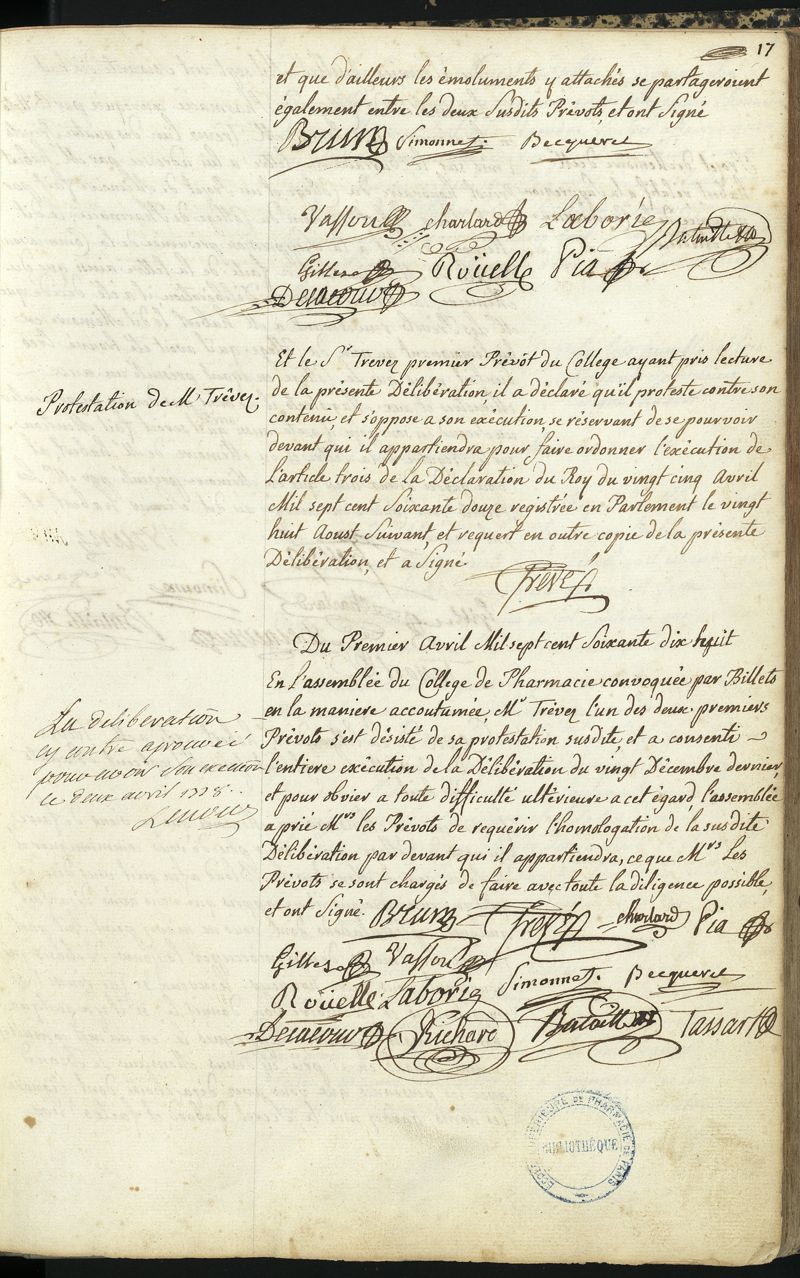 17
et que d'ailleurs les émoluments y attachés se partageroient
également entre les deux Susdits Prévots, et ont Signé
Brun Simonnet. Becqueret
Vassou charlard Laborie Bataille
Gilles Roüelle Pia
Delacour
Et le Sr Trevez premier Prévôt du College ayant pris lecture
de la présente Délibération, il a déclaré qu'il proteste contre son
contenu, et s'oppose a son exécution, se réservant de se pourvoir
devant qui il appartiendra pour faire ordonner l'exécution de
L'article trois de la Déclaration du Roy du vingt cinq Avril
Mil sept cent Soixante douze registrée en Parlement le vingt
huit Aoust Suivant, et requert en outre copie de la présente
Délibération, et a Signé
Trevez
Protestation de Mr Trévez.
Du Premier Avril Mil sept cent Soixante dix huit
En l'assemblée du College de Pharmacie convoquée par Billets
en la maniere accoutumée, Mr Trévez l'un des deux premiers
Prévots s'est désisté de sa protestation susdite, et a consenti
l'entiere exécution de la Délibération du vingt Décembre dernier,
et pour obvier a toute difficulté ultérieure a cet égard, l'assemblée
a prié Mrs les Prévots de requérir l'homologation de la susdite
Délibération par devant qui il appartiendra, ce que Mrs Les
Prévots se sont chargés de faire avec toute la diligence possible,
et ont Signé. Brun Trevez charlard Pia
Gilles Vassou
Roüelle Laborie Simonnet. Becqueret
Delacour Richard Bataille Tassart
La deliberation
cy contre aprouveé
pour avoir son execution
ce deux avril 1778..
Lenoir
ECOLE SUPERIEURE DE PHARMACIE DE PARIS
BIBLIOTHÈQUE